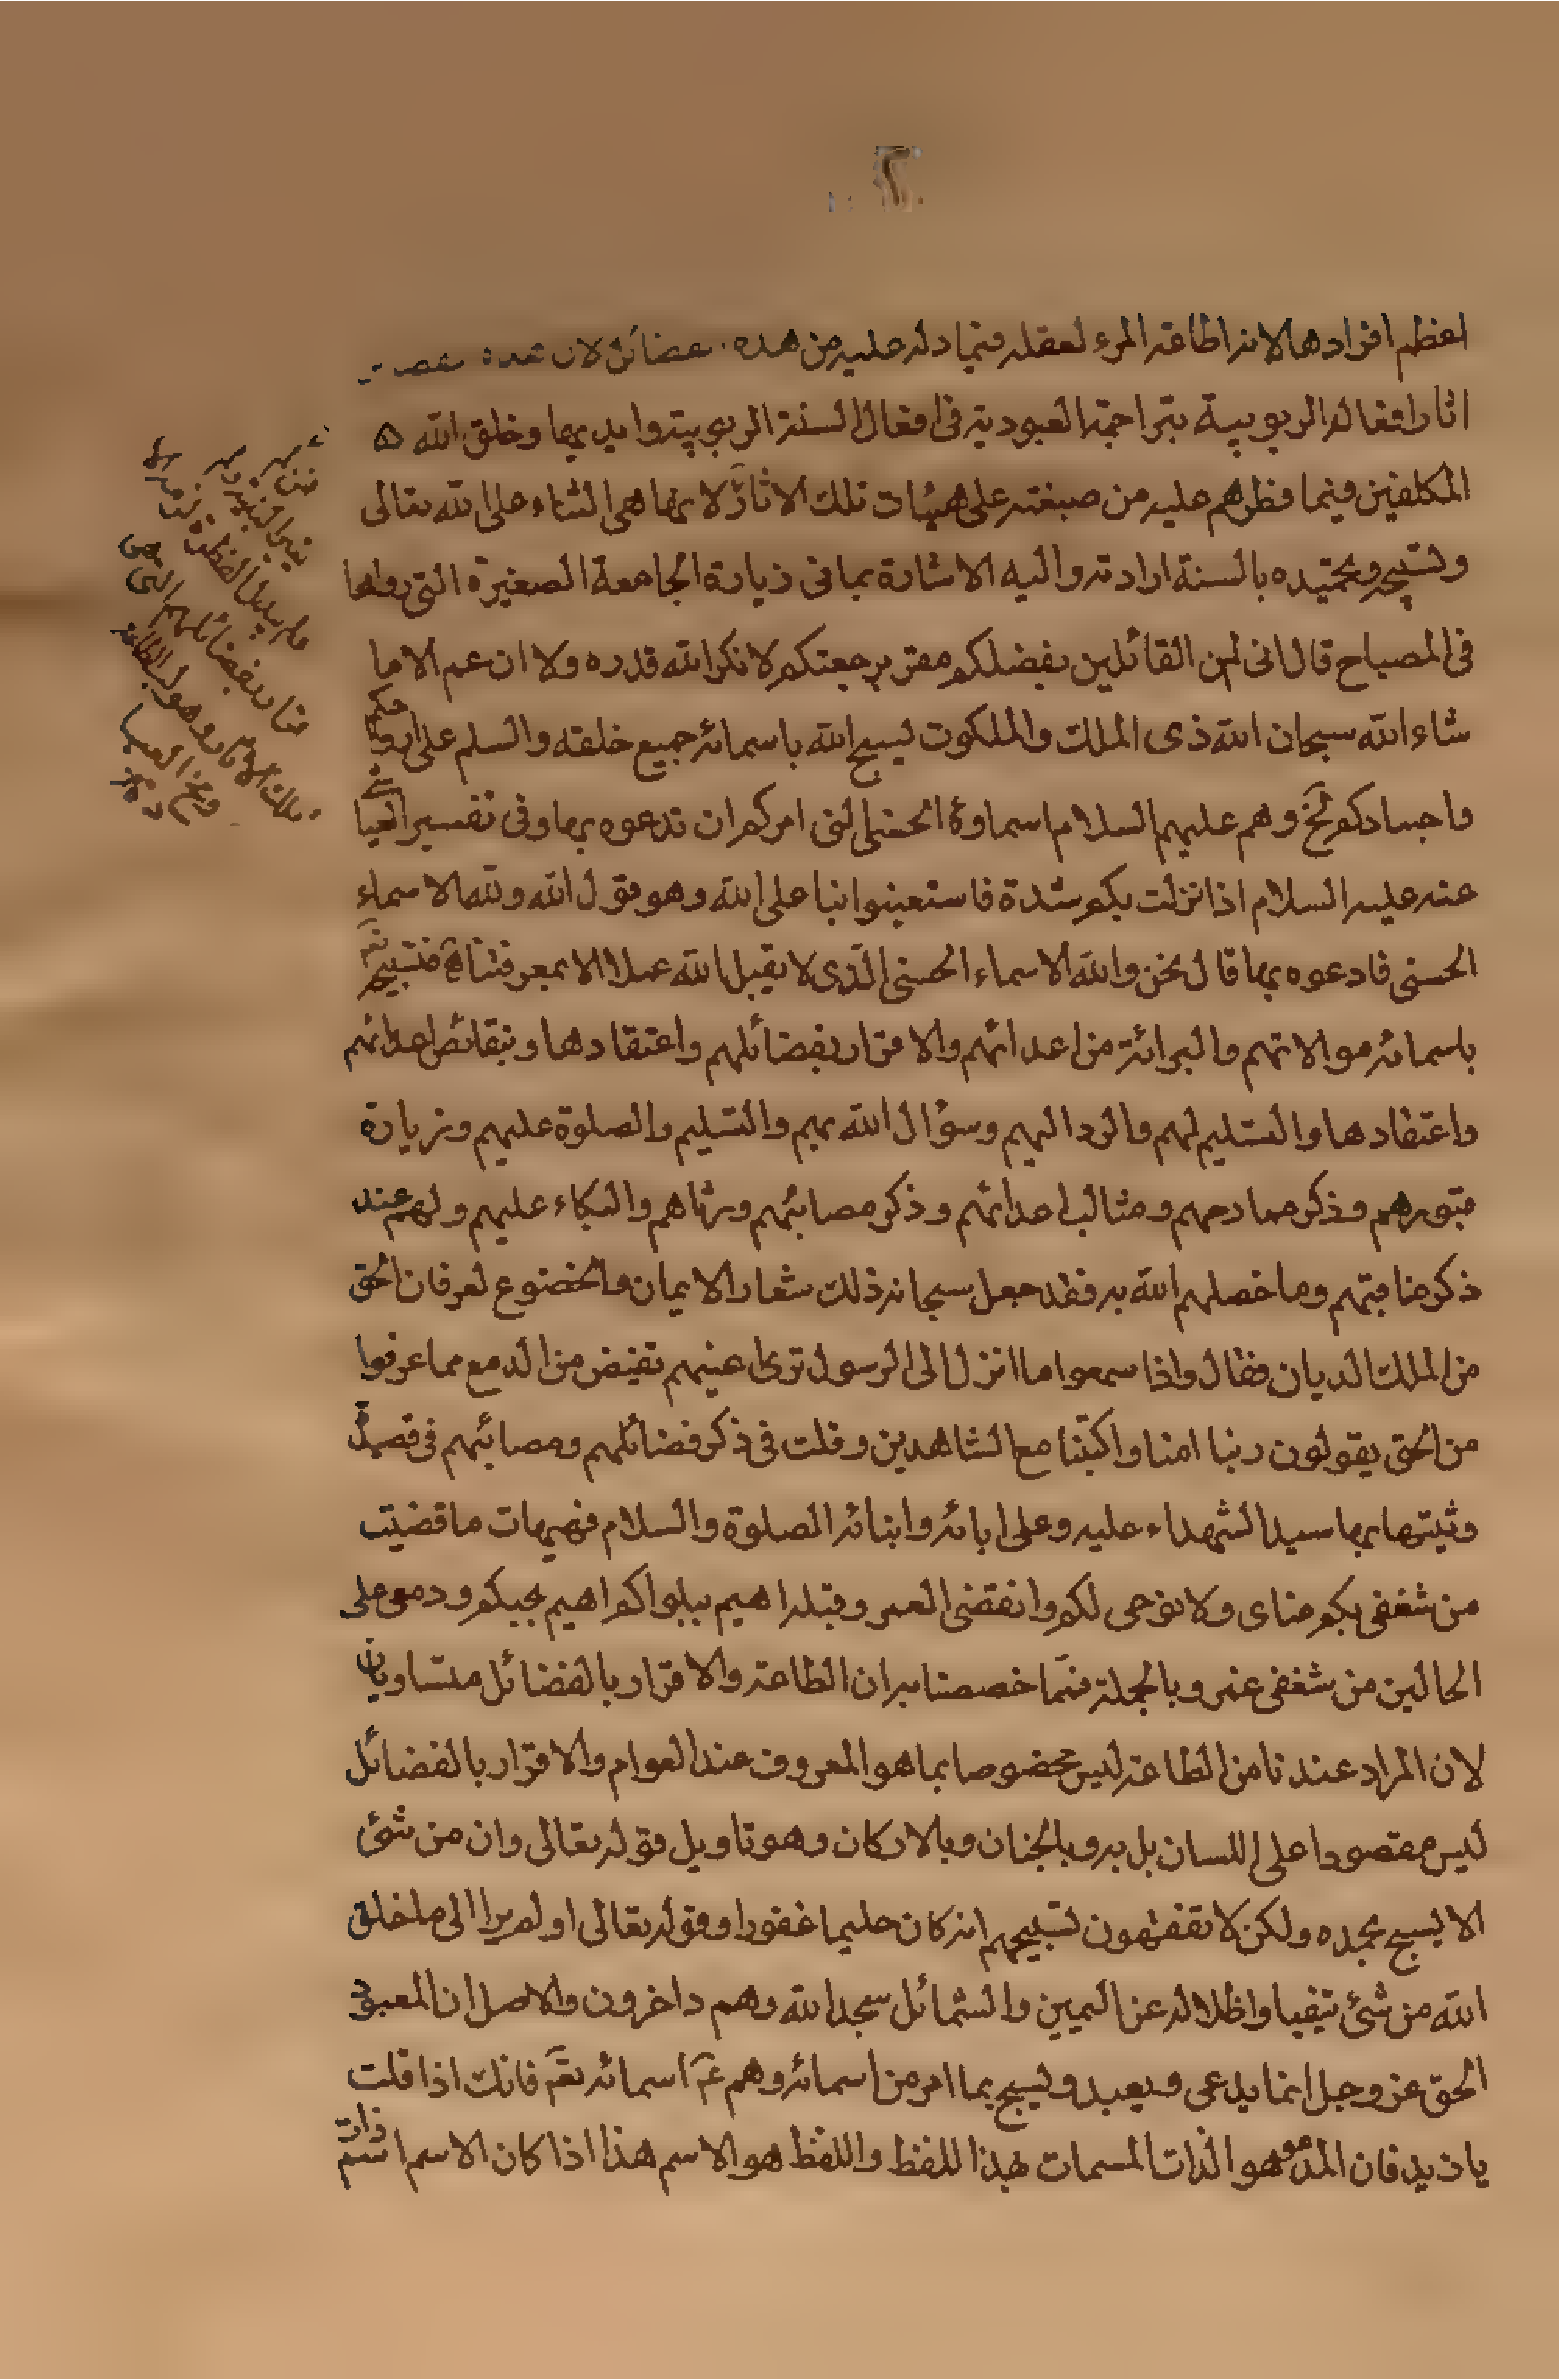 اعظم افرادها لانه اطاعة المرء لعقله فيما دله عليه من هذه الفضائل لان هذه
اثار افعاله الربوبية بتراجمة العبودية فى افعال السنة الربوبية وايد بها وخلق الله
المكلفين فيما فطرهم عليه من صبغته على هيئات تلك الاثار لانها هى الثناء على الله تعالى
وتسبيحه وتحميده بالسنة ارادته واليه الاشارة بما فى زيارة الجامعة الصغيرة التى رواها
فى المصباح قال انى لمن القائلين بفضلكم مقر برجعتكم لا نكر الله قدره ولا ازعم الا ما
شاء الله سبحان الله ذى الملك والملكوت يسبح الله باسمائه جميع خلقه والسلم على ارواحكم
واجسادكم الخ وهم عليهم السلام اسماؤه الحسنى التى امركم ان تدعوه بها وفى تفسير العياشى
عنه عليه السلام اذا نزلت بكم شدة فاستعينوا بنا على الله وهو قول الله ولله الاسماء
الحسنى فادعوه بها قال نحن والله الاسماء الحسنى الذى لا يقبل الله عملا الا بمعرفتنا فتسبيحه
باسمائه موالاتهم والبرائة من اعدائهم والاقرار بفضائلهم واعتقادها وبنقائص اعدائهم
واعتقادها والتسليم لهم والرد اليهم وسؤال الله بهم والتسليم والصلوة عليهم وزيارة
قبورهم وذكر ممادحهم ومثالب اعدائهم وذكر مصائبهم ورثاهم والبكاء عليهم ولهم عند
ذكر مناقبهم وما خصلهم الله به فقد جعل سبحانه ذلك شعار الايمان والخضوع لعرفان الحق
من الملك الديان فقال واذا سمعوا ما انزل الى الرسول ترى اعينهم تفيض من الدمع مما عرفوا
من الحق يقولون ربنا امنا واكتبنا مع الشاهدين وقلت فى ذكر فضائلهم ومصائبهم فى قصيدة
رثيتها بها سيد الشهداء عليه وعلى ابائه وابنائه الصلوة والسلام فهيهات ما قضيت
من شغفى بكم مناى ولا نوحى لكم وانقضى العمر وقبلد اهيم ببلواكم اهيم بحبكم ودمعى على
الحالين من شغفى غمر وبالجملة فمما خصصنا به ان الطاعة والاقرار بالفضائل متساويان
لان المراد عندنا من الطاعة ليس مخصوصا بما هو المعروف عند العوام والاقرار بالفضائل
ليس مقصورا على اللسان بل به وبالجنان وبالاركان وهو تاويل قوله تعالى وان من شئ
الا يسبح بحمده ولكن لا تفقهون تسبيحهم انه كان حليما غفورا وقوله تعالى اولم يروا الى ما خلق
الله من شئ يتفيأوا ظلاله عن اليمين والشمائل سجدا لله وهم داخرون والاصل ان المعبود
الحق عز وجل انما يدعى ويعبد ويسبح بما امر من اسمائه وهم ع اسمائه تع فانك اذا قلت
يا زيد فان المدعو هو الذات المسمات بهذا اللفظ واللفظ هو الاسم هذا اذا كان الاسم اسم ذات